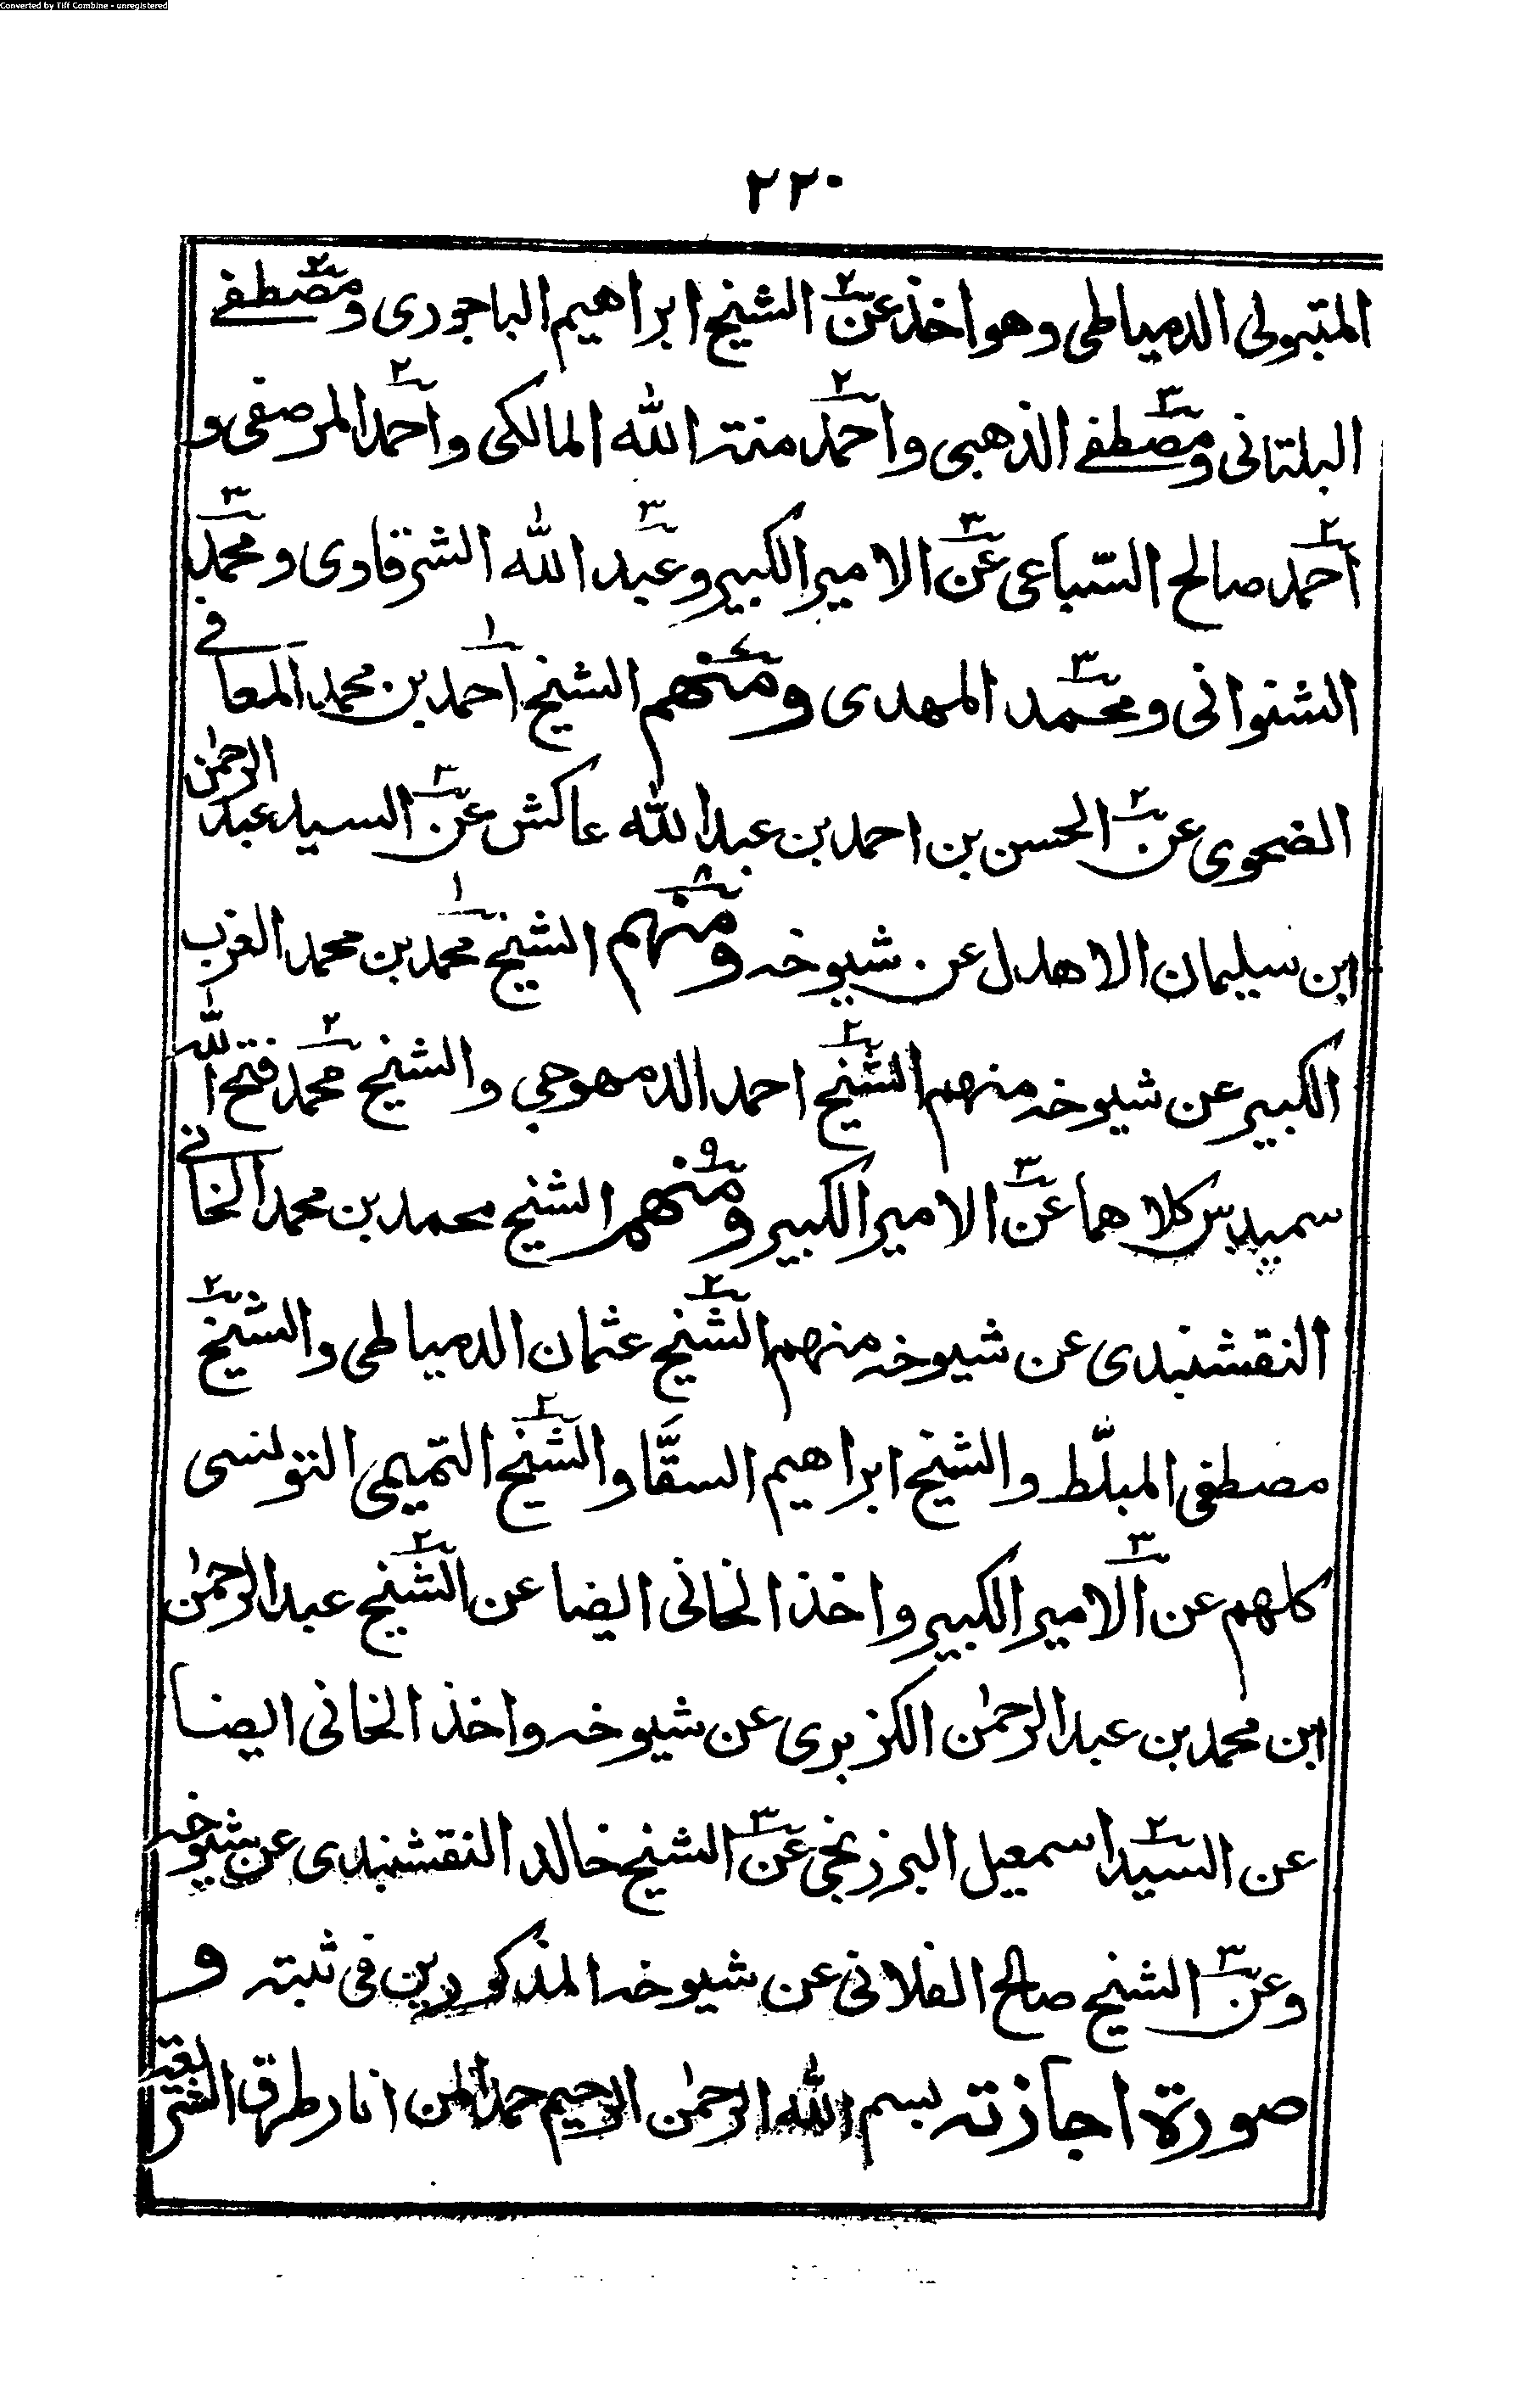 Converted by Tiff Combine - unregistered
٢٢٠
المتبولى الدمياطى وهو اخذ عن٢ الشيخ ابراهيم الباجورى ومصطفے٢
البلتانى ومصطفے٣ الذهبى واحمد٢ منة الله المالكى واحمد٢ المرصفى و
احمد٢ صالح السباعى عن٣ الامير الكبير وعبد٣ الله الشرقاوى ومحمد٣
الشنوانى ومحمد٣ المهدى ومنهم٧ الشيخ احمد١ بن محمد المعافے
الضحوى عن٢ الحسن بن احمد بن عبد الله عاكش عن٣ السيد عبد الرحمن
ابن سليمان الاهدل عن شيوخه ومنهم٨ الشيخ محمد١ بن محمد العزب
الكبير عن شيوخه منهم الشيخ٢ احمد الدمهوجى والشيخ محمد٢ فتح الله
سميدس كلاهما عن٣ الامير الكبير ومنهم٩ الشيخ محمد بن محمد الخانے
النقشبندى عن شيوخه منهم الشيخ٢ عثمان الدمياطى والشيخ٢
مصطفى المبلّط والشيخ ابراهيم السقَّا والشيخ٢ التميمى التونسى
كلهم عن الامير٣ الكبير واخذ الخانى ايضا عن الشيخ٢ عبد الرحمن
ابن محمد بن عبد الرحمن الكزبرى عن شيوخه واخذ الخانى ايضا
عن السيد٢ اسمعيل البرزنجى عن٣ الشيخ خالد النقشبندى عن شيوخه
وعن٣ الشيخ صالح الفلانى عن شيوخه المذكورين فى ثبته و
صورة اجازته بسم الله الرحمن الرحيم حمدا لمن انار طرق الشريعة